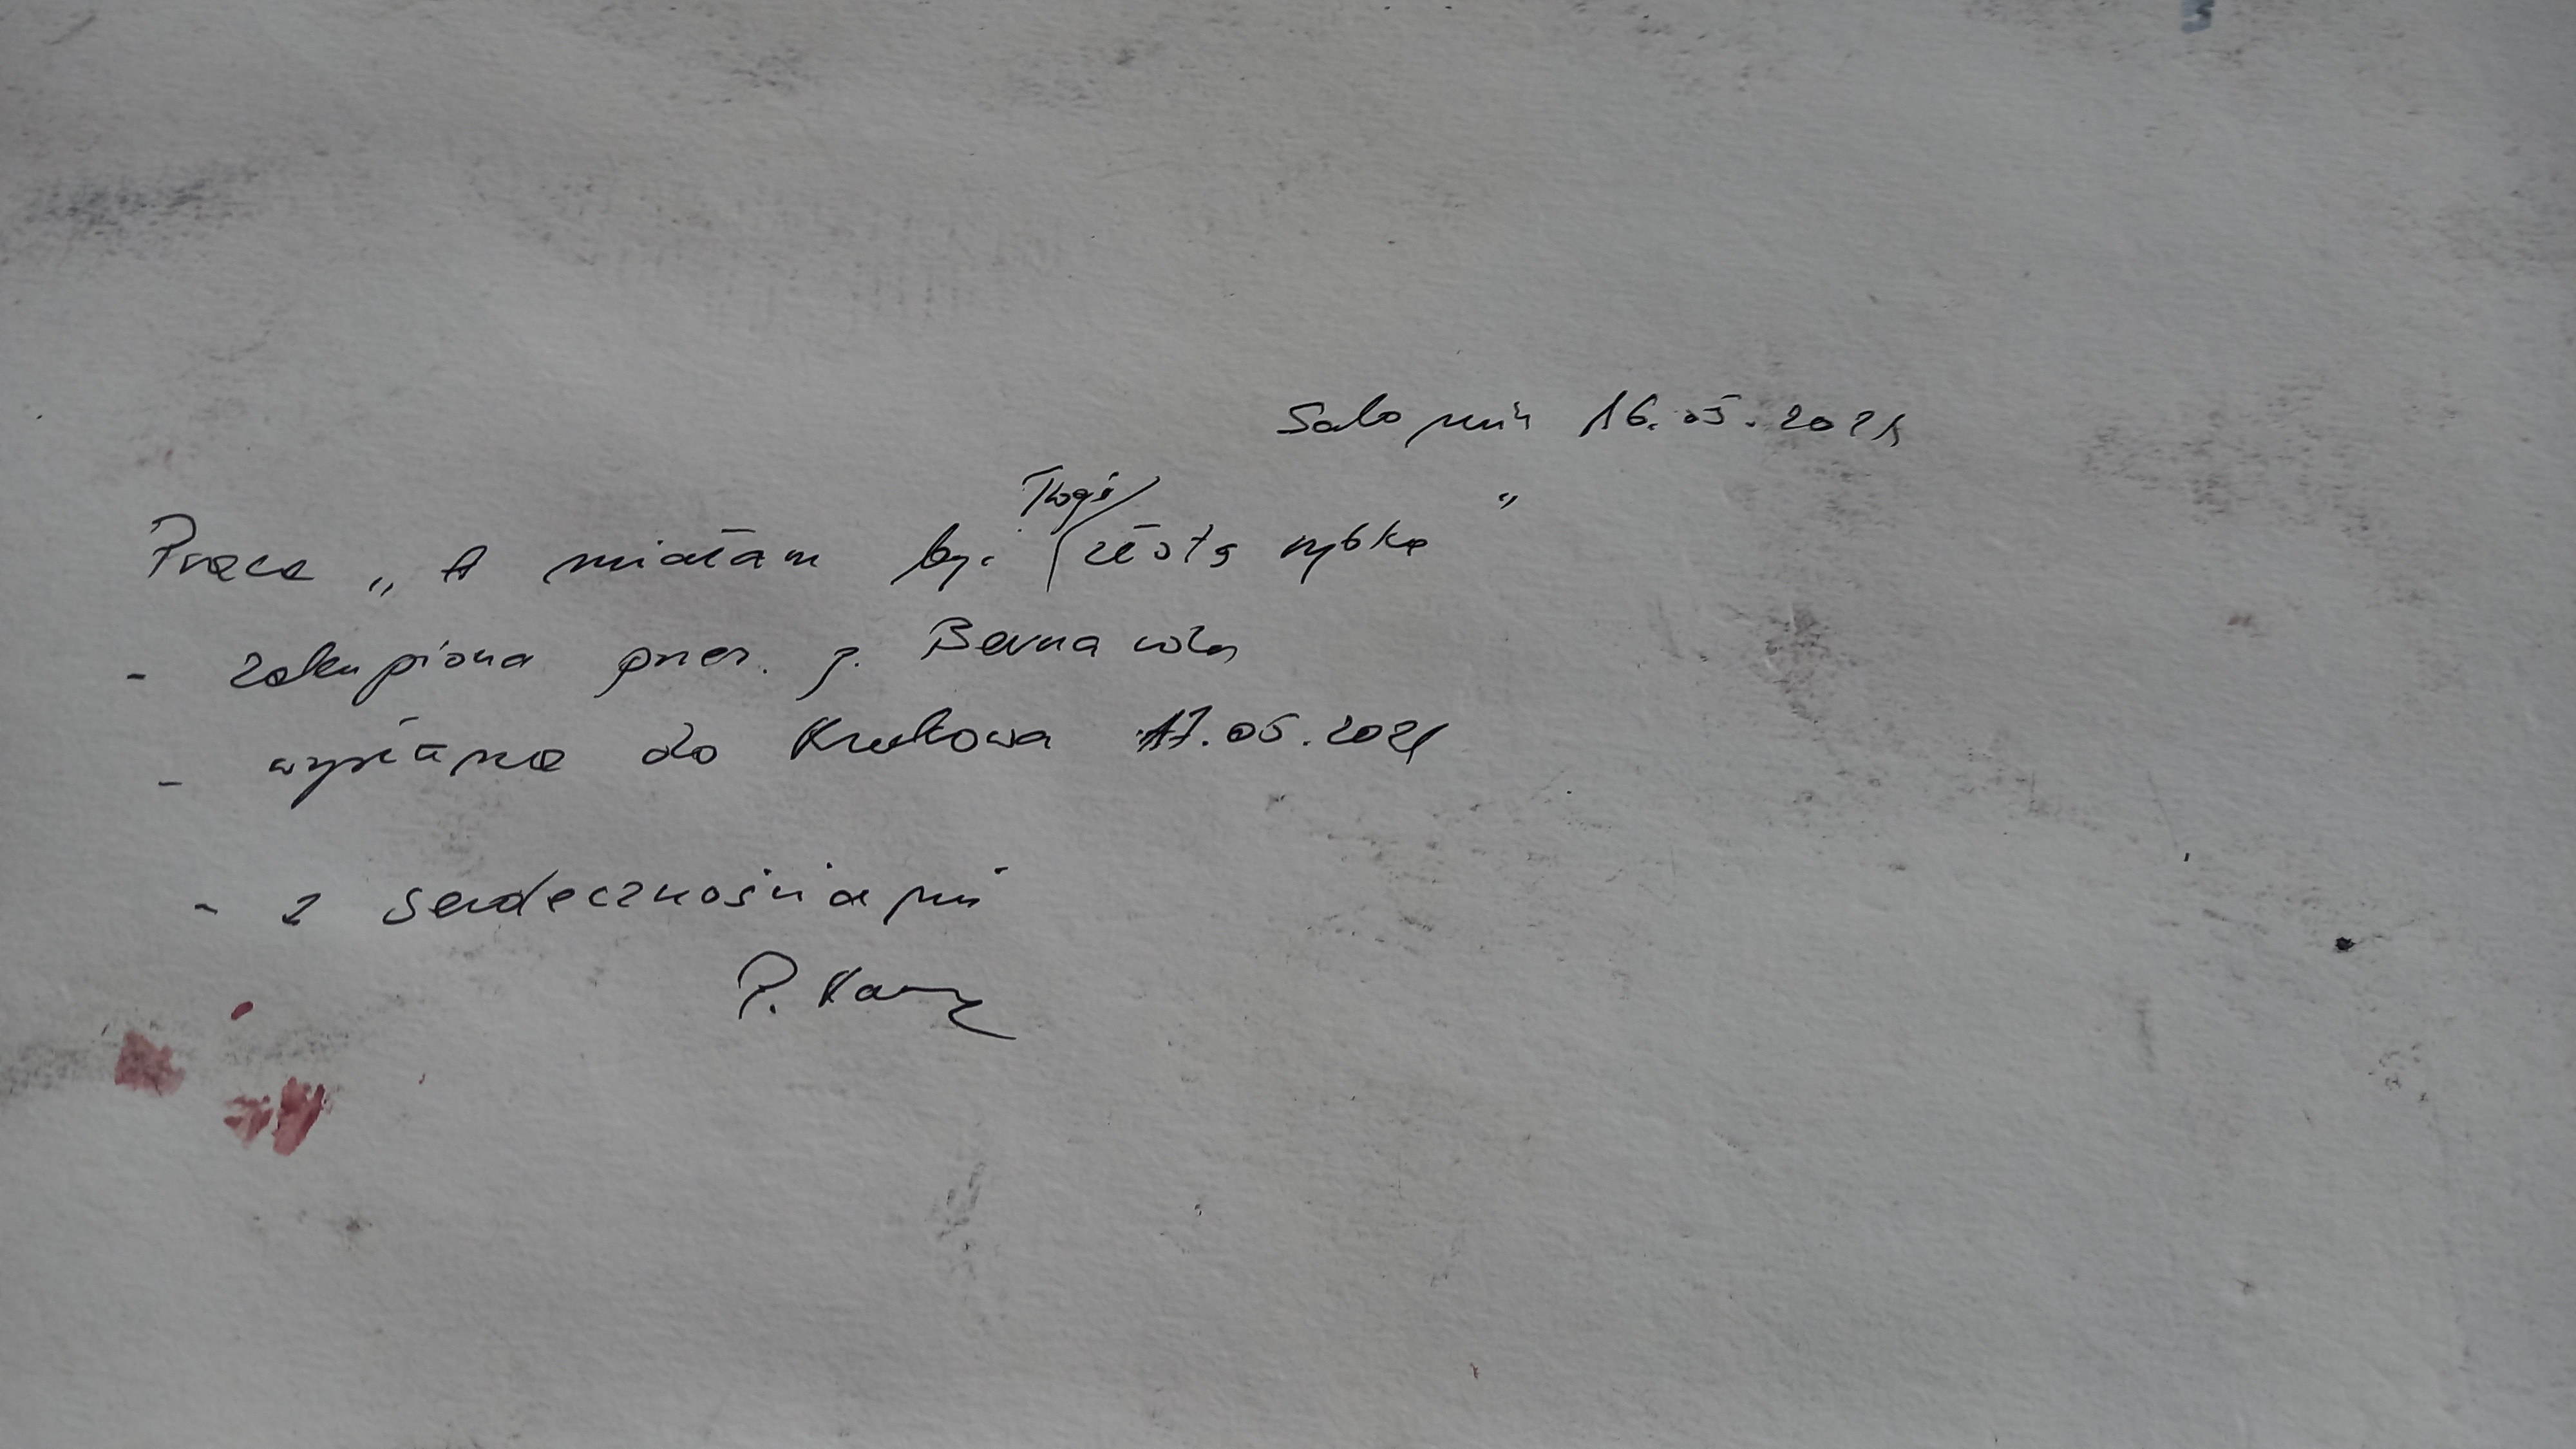 Salomin 16.05.2021
Praca „A miałam być Twoją złotą rybką"
- zakupiona przez p.
- wysłana do Krakowa 17.05.2021
- z serdecznościami
P.